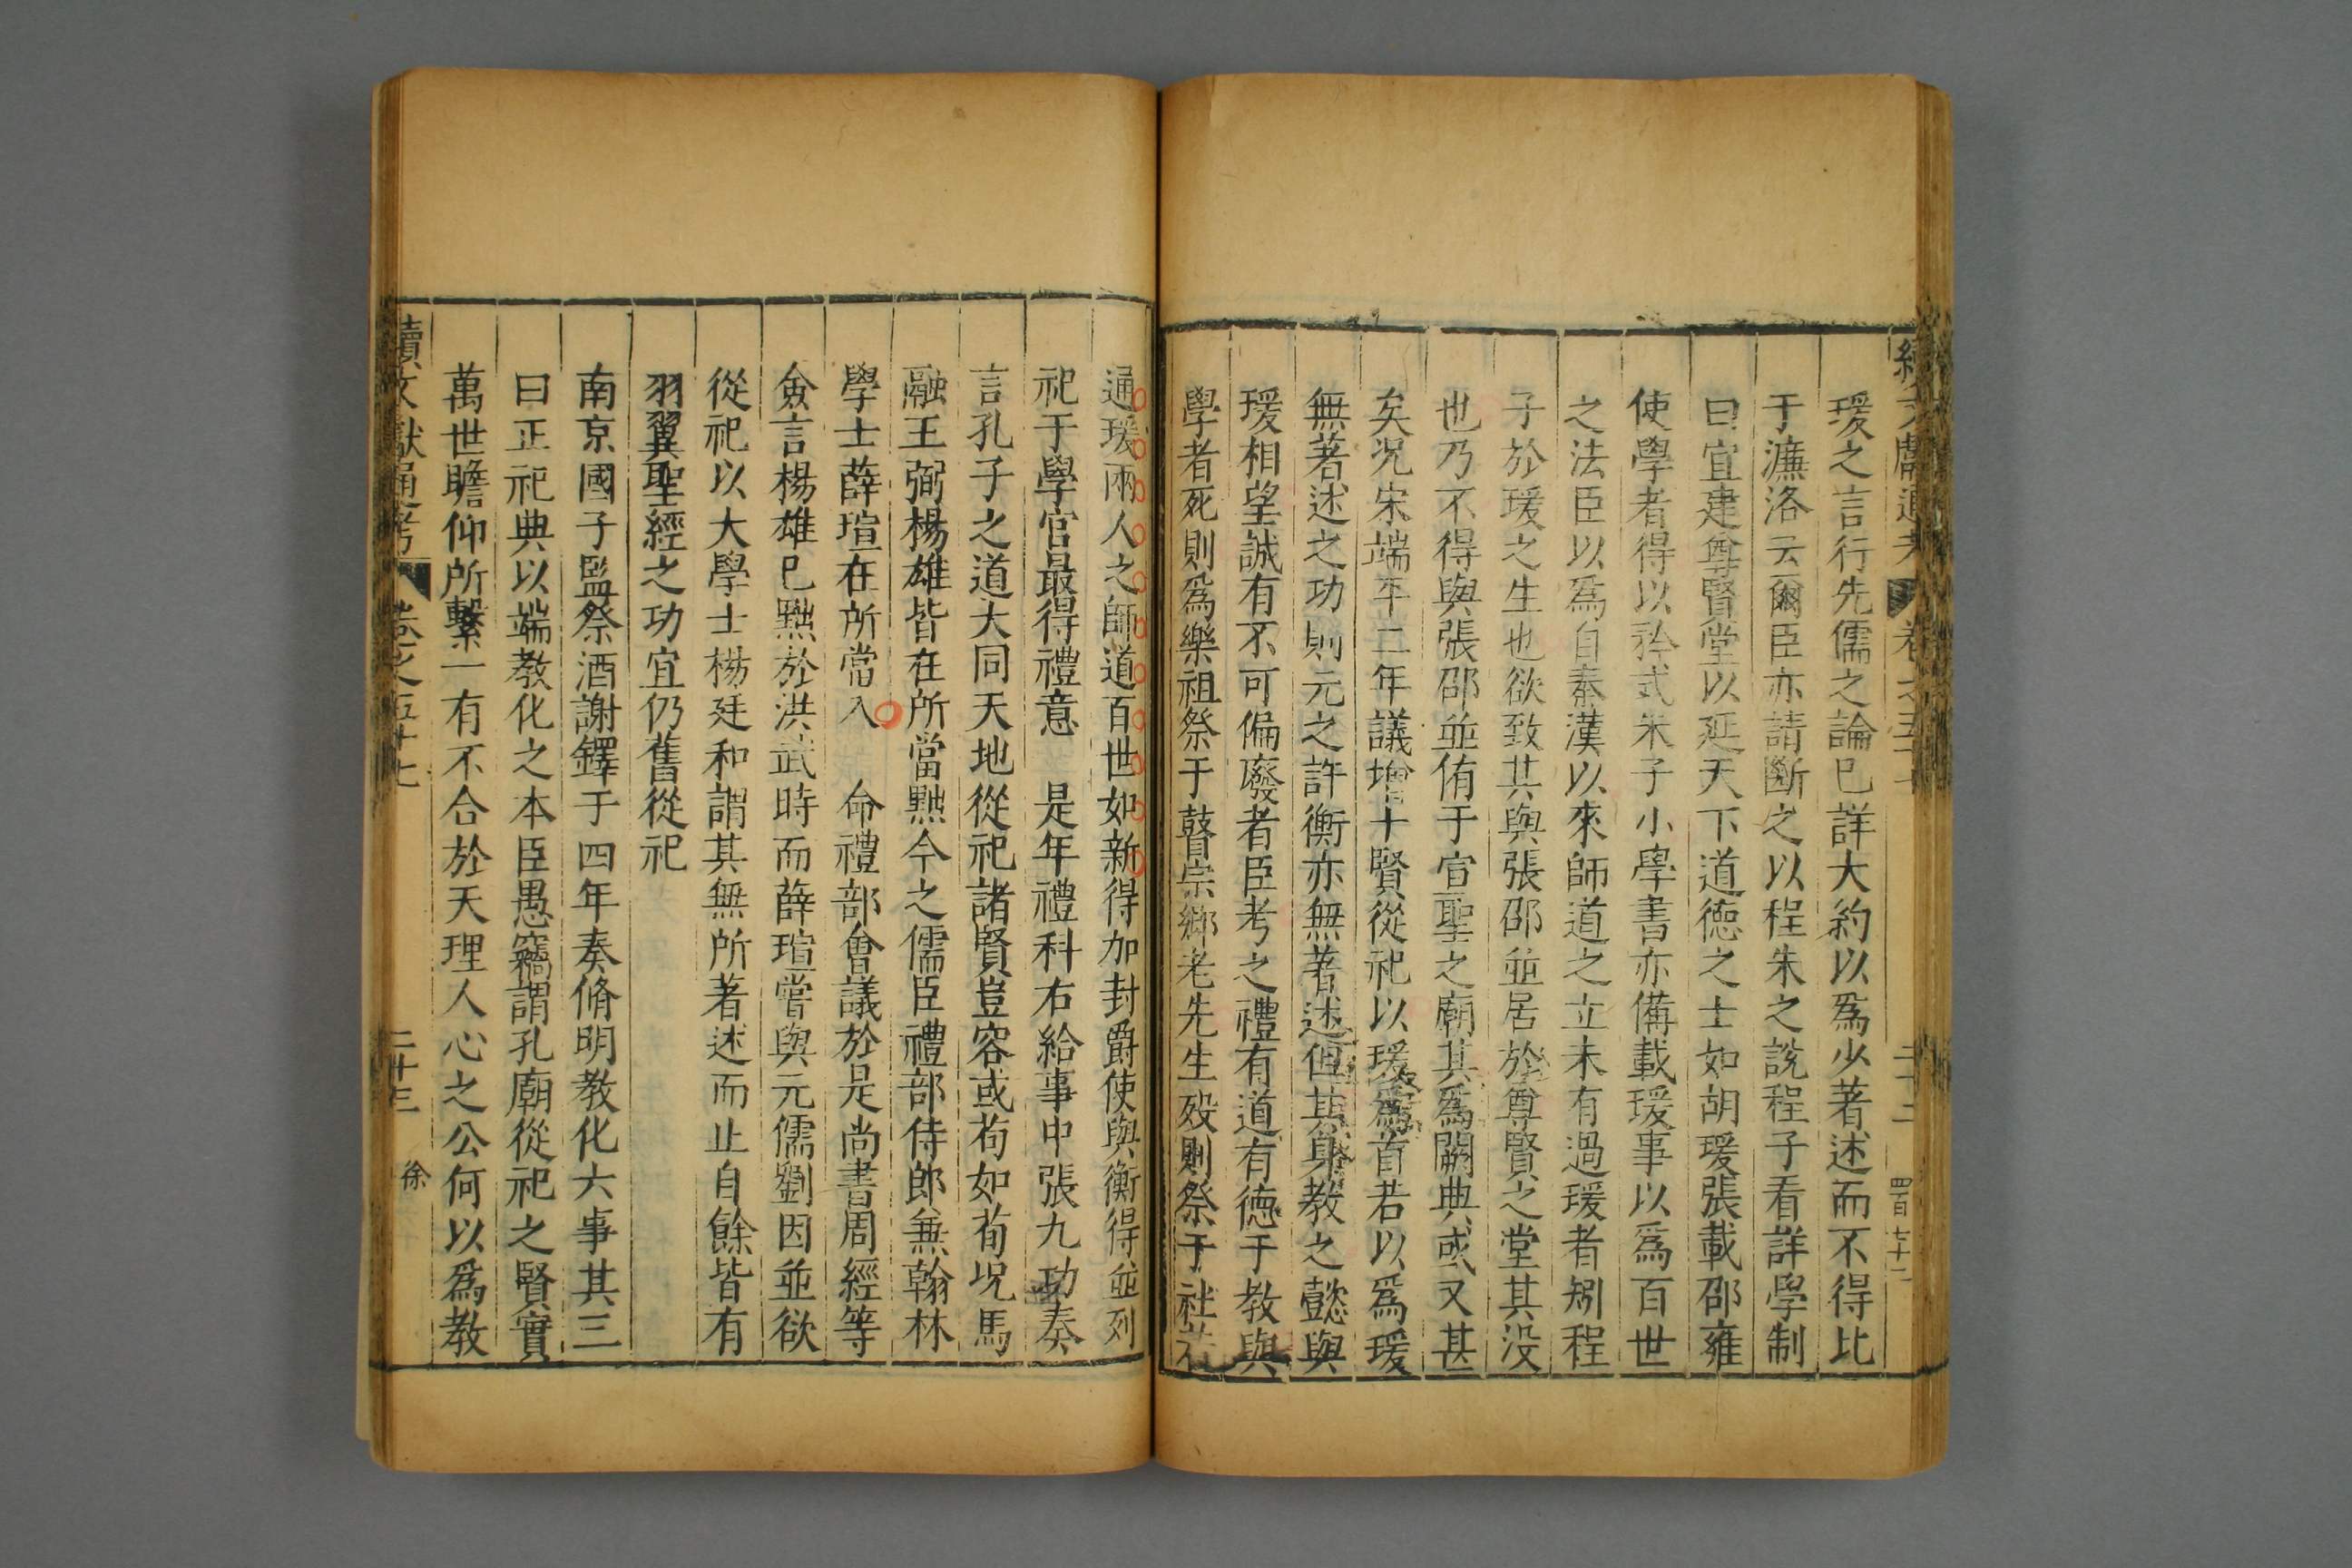 瑗之言行先儒之論已詳大約以爲少著述而不得比
于濂洛云爾臣亦請斷之以程朱之說程子看詳學制
曰宜建尊賢堂以延天下道德之士如胡瑗張載邵雍
使學者得以矜式朱子小學書亦備載瑗事以爲百世
之法臣以爲自秦漢以來師道之立未有過瑗者矧程
子於瑗之生也欲致其與張邵並居於尊賢之堂其没
也乃不得與張邵並侑于宣聖之廟其爲闕典或又甚
矣况宋端平二年議增十賢從祀以瑗爲首若以爲瑗
無著述之功則元之許衡亦無著述但其身教之懿與
瑗相望誠有不可偏廢者臣考之禮有道有德于教與
學者死則爲樂祖祭于瞽宗鄉老先生殁則祭于社若
通瑗兩人之師道百世如新得加封爵使與衡得並列
祀于學官最得禮意　是年禮科右給事中張九功奏
言孔子之道大同天地從祀諸賢豈容或苟如荀况馬
融王弼楊雄皆在所當黜今之儒臣禮部侍郎兼翰林
學士薛瑄在所當入　命禮部會議於是尚書周經等
僉言楊雄已黜於洪武時而薛瑄嘗與元儒劉因並欲
從祀以大學士楊廷和謂其無所著述而止自餘皆有
羽翼聖經之功宜仍舊從祀
南京國子監祭酒謝鐸于四年奏脩明教化六事其三
曰正祀典以端教化之本臣愚竊謂孔廟從祀之賢實
萬世瞻仰所繫一有不合於天理人心之公何以爲教
續文獻通考　卷之五十七　二十三　徐